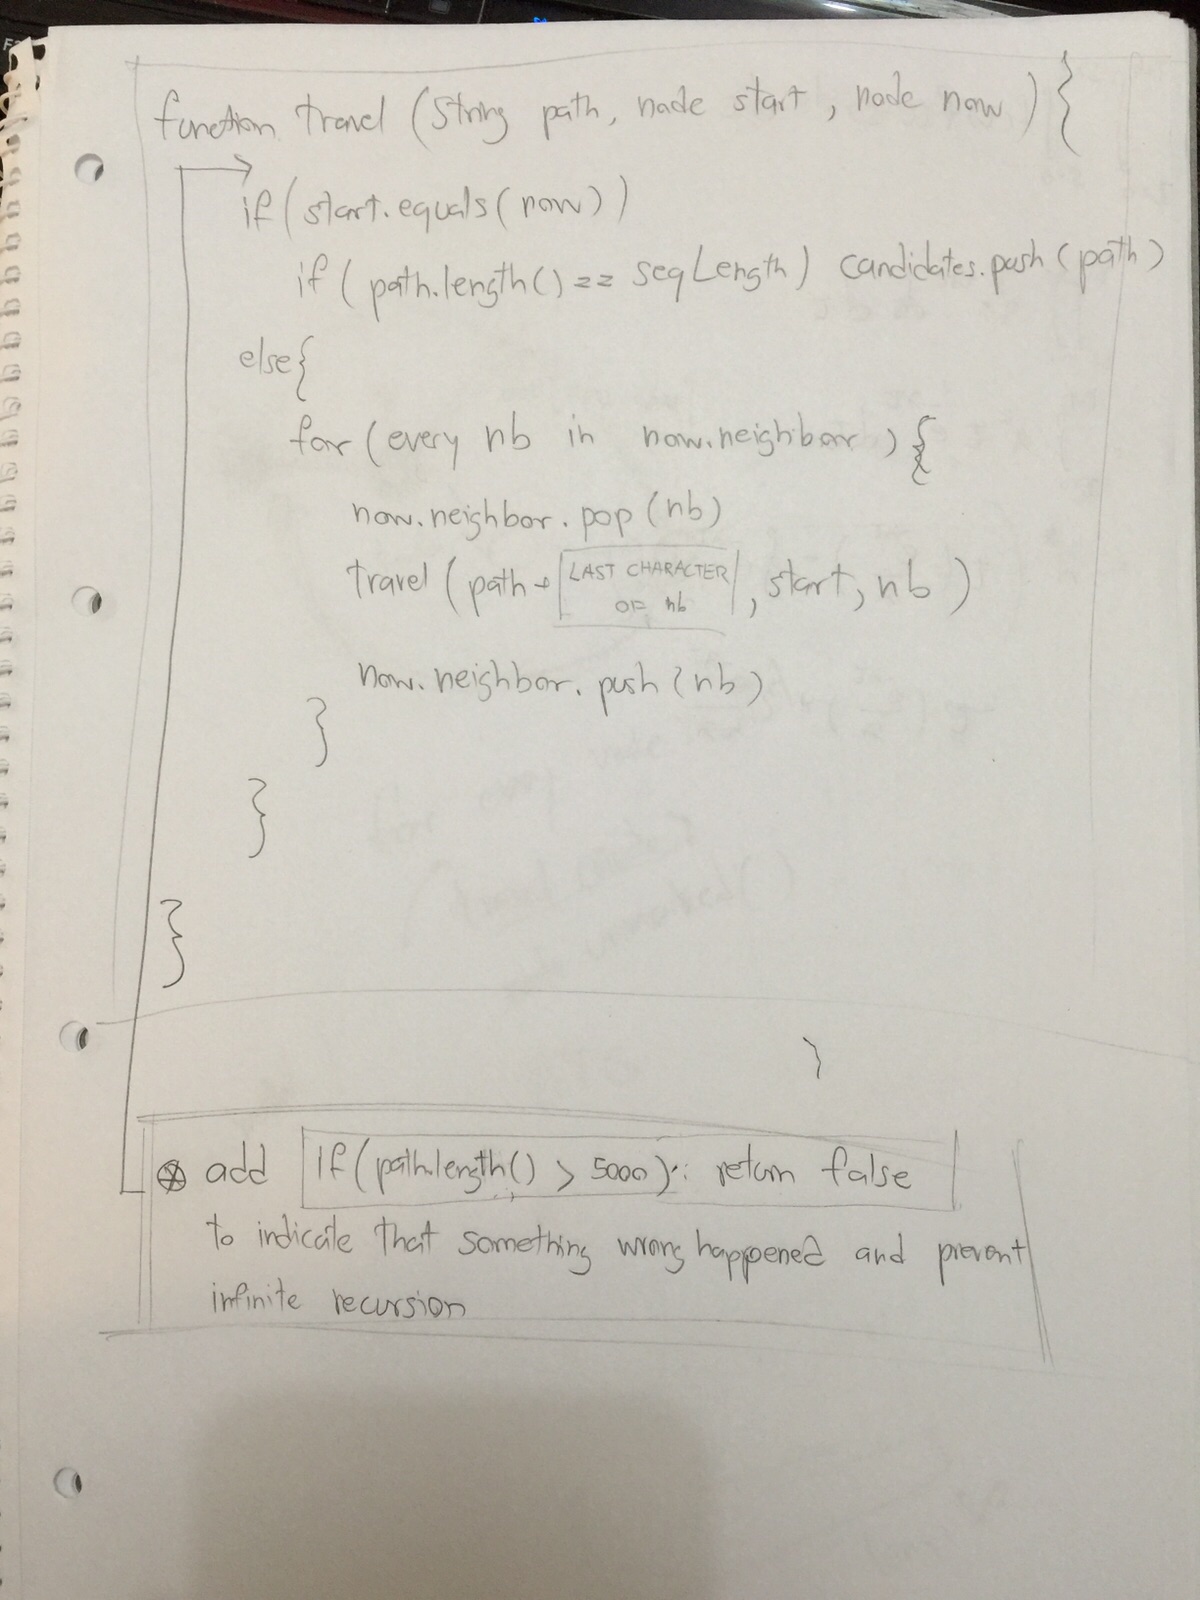 function travel (String path, node start, node now) {
if (start.equals(now))
if (path.length() == seqLength) candidates.push(path)
else{
for (every nb in now.neighbor) {
now.neighbor.pop(nb)
travel (path + LAST CHARACTER OF nb, start, nb)
now.neighbor.push(nb)
}
}
}
}
⊛ add if(path.length() > 5000): return false
to indicate that something wrong happened and prevent
infinite recursion